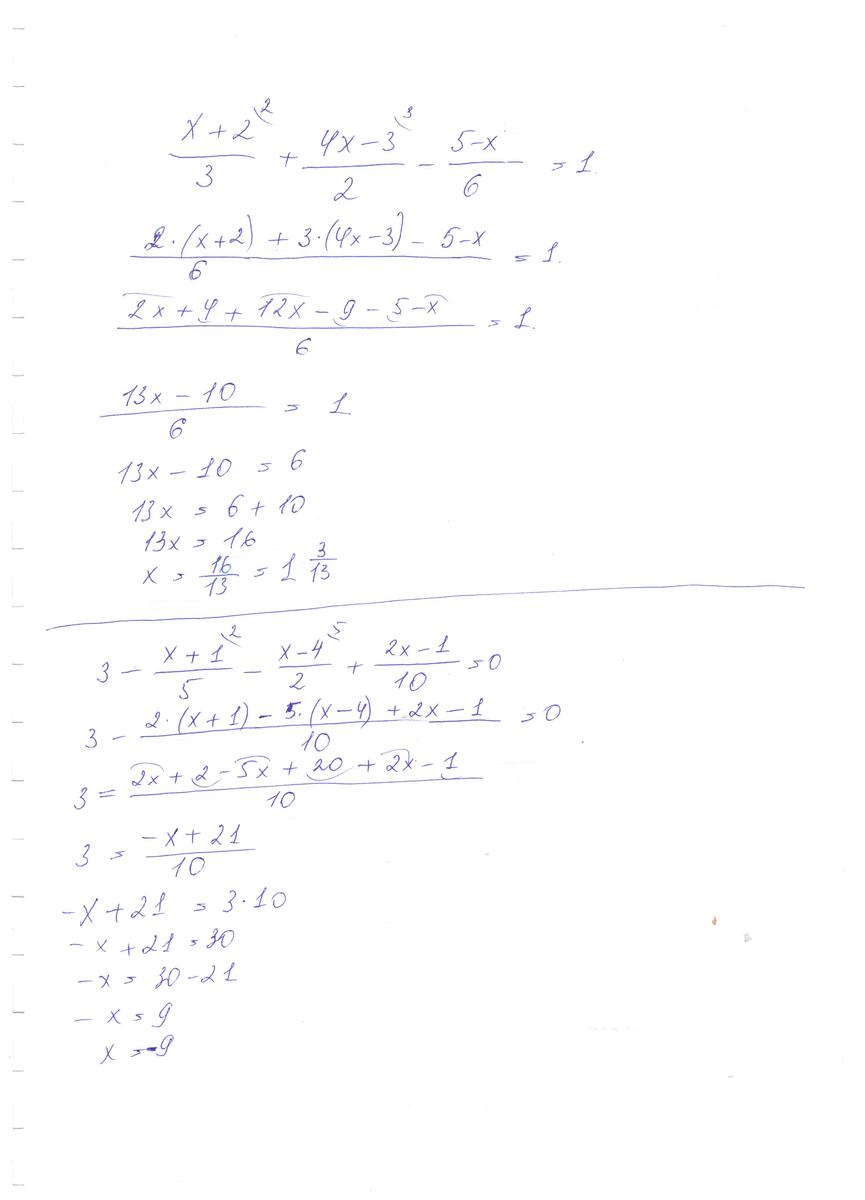 (x+2)/3 ² + (4x-3)/2 ³ - (5-x)/6 = 1.
(2·(x+2) + 3·(4x-3) - 5-x)/6 = 1.
(2x+4+12x-9-5-x)/6 = 1.
(13x-10)/6 = 1
13x-10 = 6
13x = 6+10
13x = 16
x = 16/13 = 1 3/13
3 - (x+1)/5 ² - (x-4)/2 ⁵ + (2x-1)/10 = 0
3 - (2·(x+1) - 5·(x-4) + 2x-1)/10 = 0
3 = (2x+2-5x+20+2x-1)/10
3 = (-x+21)/10
-x+21 = 3·10
-x+21 = 30
-x = 30-21
-x = 9
x = -9